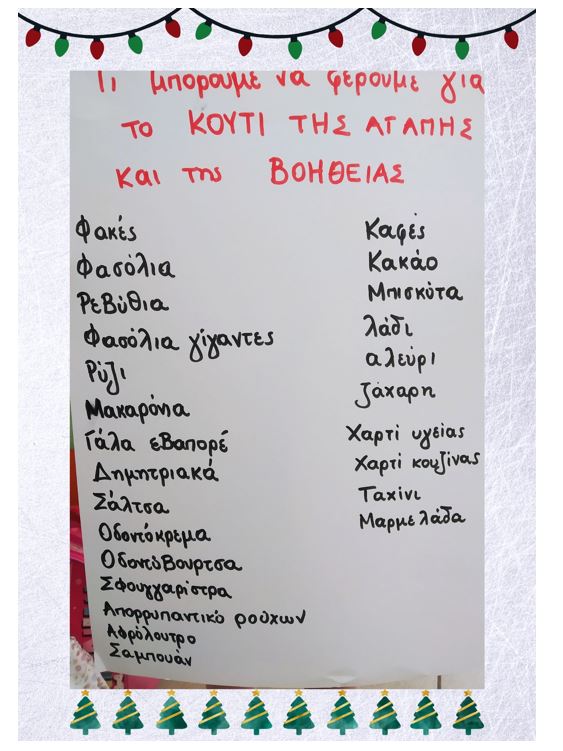 Τι μπορουμε να φερουμε για
το ΚΟΥΤΙ ΤΗΣ ΑΓΑΠΗΣ
και της ΒΟΗΘΕΙΑΣ
Φακές
Φασόλια
Ρεβύθια
Φασόλια γίγαντες
Ρύζι
Μακαρόνια
Γάλα εβαπορέ
Δημητριακά
Σάλτσα
Οδοντόκρεμα
Οδοντόβουρτσα
Σφουγγαρίστρα
Απορρυπαντικό ρούχων
Αφρόλουτρο
Σαμπουάν
Καφές
Κακάο
Μπισκότα
λάδι
αλεύρι
ζάχαρη
Χαρτί υγείας
Χαρτί κουζίνας
Ταχίνι
Μαρμελάδα